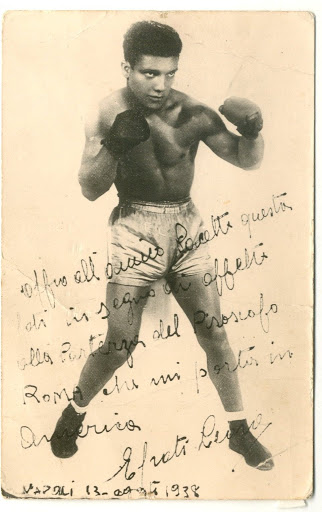 Offro all'amico Pacetti questa
di in segno di affetto
alla Partenza del Piroscafo
Roma che mi porta in
America
Efrati Leone
Napoli 13- agosto 1938